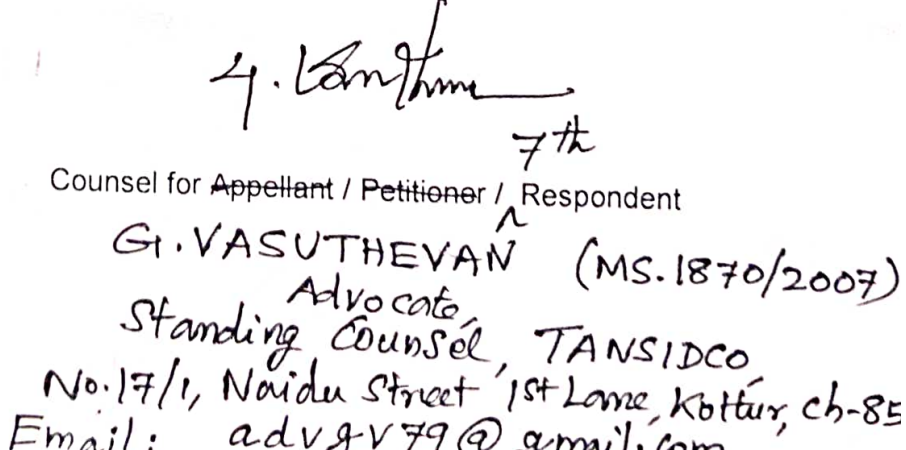 7th
Counsel for Appellant / Petitioner / Respondent
G. VASUTHEVAN (MS. 1870/2007)
Advocate,
Standing Counsel, TANSIDCO,
No. 17/1, Naidu Street 1st Lane, Kottur, Ch-85
Email: advgv79@gmail.com